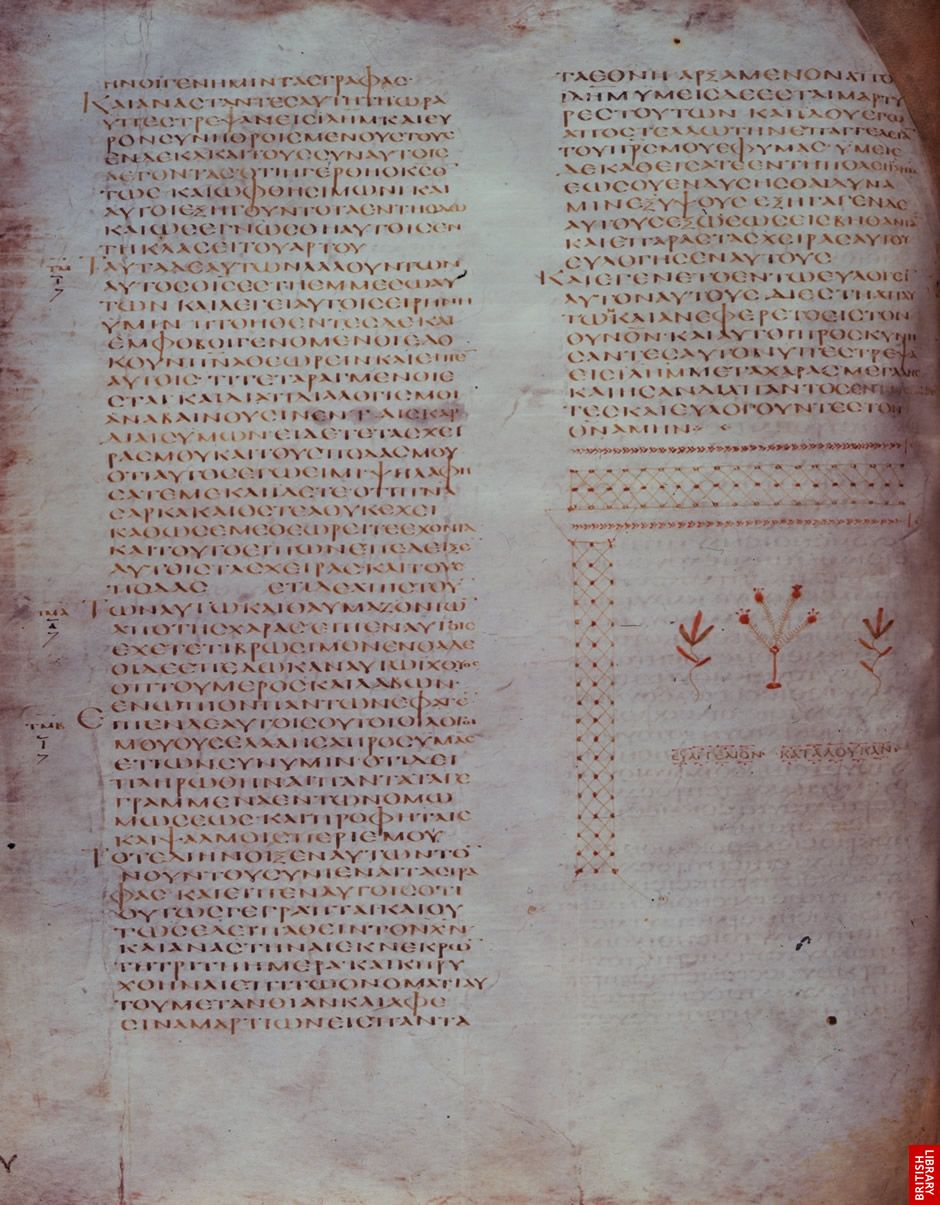 ΗΝΟΙΓΕΝΗΜΙΝΤΑϹΓΡΑΦΑϹ·
ΚΑΙΑΝΑϹΤΑΝΤΕϹΑΥΤΗΤΗΩΡΑ
ΥΠΕϹΤΡΕΨΑΝΕΙϹΙΛΗΜΚΑΙΕΥ
ΡΟΝϹΥΝΗΘΡΟΙϹΜΕΝΟΥϹΤΟΥϹ
ΕΝΔΕΚΑΚΑΙΤΟΥϹϹΥΝΑΥΤΟΙϹ
ΛΕΓΟΝΤΑϹΟΤΙΗΓΕΡΘΗΟΚϹΟ
ΤΩϹΚΑΙΩΦΘΗϹΙΜΩΝΙΚΑΙ
ΑΥΤΟΙΕΞΗΓΟΥΝΤΟΤΑΕΝΤΗΟΔΩ
ΚΑΙΩϹΕΓΝΩϹΘΗΑΥΤΟΙϹΕΝ
ΤΗΚΛΑϹΕΙΤΟΥΑΡΤΟΥ
ΤΜ
ΤΑΥΤΑΔΕΑΥΤΩΝΛΑΛΟΥΝΤΩΝ
ΑΥΤΟϹΟΙϹΕϹΤΗΕΜΜΕϹΩΑΥ
ΤΩΝΚΑΙΛΕΓΕΙΑΥΤΟΙϹΕΙΡΗΝΗ
ΥΜΙΝ ΠΤΟΗΘΕΝΤΕϹΔΕΚΑΙ
ΕΜΦΟΒΟΙΓΕΝΟΜΕΝΟΙΕΔΟ
ΚΟΥΝΠΝΑΘΕΩΡΕΙΝΚΑΙΕΙΠΕ
ΑΥΤΟΙϹ·ΤΙΤΕΤΑΡΑΓΜΕΝΟΙΕ
ϹΤΑΙΚΑΙΔΙΑΤΙΔΙΑΛΟΓΙϹΜΟΙ
ΑΝΑΒΑΙΝΟΥϹΙΝΕΝΤΑΙϹΚΑΡ
ΔΙΑΙϹΥΜΩΝ·ΕΙΔΕΤΕΤΑϹΧΕΙ
ΡΑϹΜΟΥΚΑΙΤΟΥϹΠΟΔΑϹΜΟΥ
ΟΤΙΑΥΤΟϹΕΓΩΕΙΜΙ·ΨΗΛΑΦΗ
ϹΑΤΕΜΕΚΑΙΙΔΕΤΕΟΤΙΠΝΑ
ϹΑΡΚΑΚΑΙΟϹΤΕΑΟΥΚΕΧΕΙ
ΚΑΘΩϹΕΜΕΘΕΩΡΕΙΤΕΕΧΟΝΤΑ
ΚΑΙΤΟΥΤΟΕΙΠΩΝΕΠΕΔΕΙΞΕ
ΑΥΤΟΙϹΤΑϹΧΕΙΡΑϹΚΑΙΤΟΥϹ
ΠΟΔΑϹ ΕΤΙΔΕΑΠΙϹΤΟΥ
ΤΜΑ
ΤΩΝΑΥΤΩΚΑΙΘΑΥΜΑΖΟΝΤΩ
ΑΠΟΤΗϹΧΑΡΑϹ·ΕΙΠΕΝΑΥΤΟΙϹ
ΕΧΕΤΕΤΙΒΡΩϹΙΜΟΝΕΝΘΑΔΕ
ΟΙΔΕΕΠΕΔΩΚΑΝΑΥΤΩΙΧΘΥΟϹ
ΟΠΤΟΥΜΕΡΟϹΚΑΙΛΑΒΩΝ·
ΕΝΩΠΙΟΝΠΑΝΤΩΝΕΦΑΓΕ
ΤΜΒ
ΕΙΠΕΝΔΕΑΥΤΟΙϹΟΥΤΟΙΟΙΛΟΓΟΙ
ΜΟΥΟΥϹΕΛΑΛΗϹΑΠΡΟϹΥΜΑϹ
ΕΤΙΩΝϹΥΝΥΜΙΝ·ΟΤΙΔΕΙ
ΠΛΗΡΩΘΗΝΑΙΠΑΝΤΑΤΑΓΕ
ΓΡΑΜΜΕΝΑΕΝΤΩΝΟΜΩ
ΜΩϹΕΩϹ·ΚΑΙΠΡΟΦΗΤΑΙϹ
ΚΑΙΨΑΛΜΟΙϹΠΕΡΙΕΜΟΥ
ΤΟΤΕΔΙΗΝΟΙΞΕΝΑΥΤΩΝΤΟ
ΝΟΥΝΤΟΥϹΥΝΙΕΝΑΙΤΑϹΓΡΑ
ΦΑϹ·ΚΑΙΕΙΠΕΝΑΥΤΟΙϹΟΤΙ
ΟΥΤΩϹΓΕΓΡΑΠΤΑΙΚΑΙΟΥ
ΤΩϹΕΔΕΙΠΑΘΕΙΝΤΟΝΧΝ
ΚΑΙΑΝΑϹΤΗΝΑΙΕΚΝΕΚΡΩ
ΤΗΤΡΙΤΗΗΜΕΡΑ·ΚΑΙΚΗΡΥ
ΧΘΗΝΑΙΕΠΙΤΩΟΝΟΜΑΤΙΑΥ
ΤΟΥΜΕΤΑΝΟΙΑΝΚΑΙΑΦΕ
ϹΙΝΑΜΑΡΤΙΩΝΕΙϹΠΑΝΤΑ
ΤΑΕΘΝΗ·ΑΡΞΑΜΕΝΟΝΑΠΟ
ΙΛΗΜΥΜΕΙϹΔΕΕϹΤΑΙΜΑΡΤΥ
ΡΕϹΤΟΥΤΩΝ ΚΑΙΙΔΟΥΕΓΩ
ΑΠΟϹΤΕΛΛΩΤΗΝΕΠΑΓΓΕΛΕΙΑ
ΤΟΥΠΡϹΜΟΥΕΦΥΜΑϹ·ΥΜΕΙϹ
ΔΕΚΑΘΕΙϹΑΤΕΕΝΤΗΠΟΛΕΙΙΛΗΜ
ΕΩϹΟΥΕΝΔΥϹΗϹΘΑΙΔΥΝΑ
ΜΙΝΕΞΥΨΟΥϹ ΕΞΗΓΑΓΕΝΔΕ
ΑΥΤΟΥϹΕΞΩΕΩϹΕΙϹΒΗΘΑΝΙΑ
ΚΑΙΕΠΑΡΑϹΤΑϹΧΕΙΡΑϹΑΥΤΟΥ
ΕΥΛΟΓΗϹΕΝΑΥΤΟΥϹ
ΚΑΙΕΓΕΝΕΤΟΕΝΤΩΕΥΛΟΓΕΙ
ΑΥΤΟΝΑΥΤΟΥϹ·ΔΙΕϹΤΗΑΠΑΥ
ΤΩΚΑΙΑΝΕΦΕΡΕΤΟΕΙϹΤΟΝ
ΟΥΝΟΝ·ΚΑΙΑΥΤΟΙΠΡΟϹΚΥΝΗ
ϹΑΝΤΕϹΑΥΤΟΝΥΠΕϹΤΡΕΨΑ
ΕΙϹΙΛΗΜΜΕΤΑΧΑΡΑϹΜΕΓΑΛΗϹ
ΚΑΙΗϹΑΝΔΙΑΠΑΝΤΟϹΕΝΤΩ
ΤΕϹΚΑΙΕΥΛΟΓΟΥΝΤΕϹΤΟΝ
ΘΝΑΜΗΝ·
ΕΥΑΓΓΕΛΙΟΝ ΚΑΤΑΛΟΥΚΑΝ
BRITISH
LIBRARY